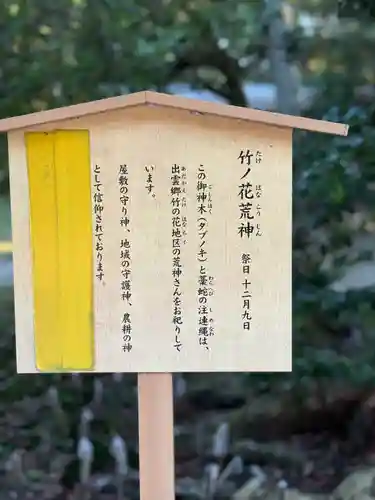 竹ノ花荒神 祭日 十二月九日
この御神木(タブノキ)と藁蛇の注連縄は、
出雲郷竹の花地区の荒神さんをお祀りして
います。
屋敷の守り神、地域の守護神、農耕の神
として信仰されております。